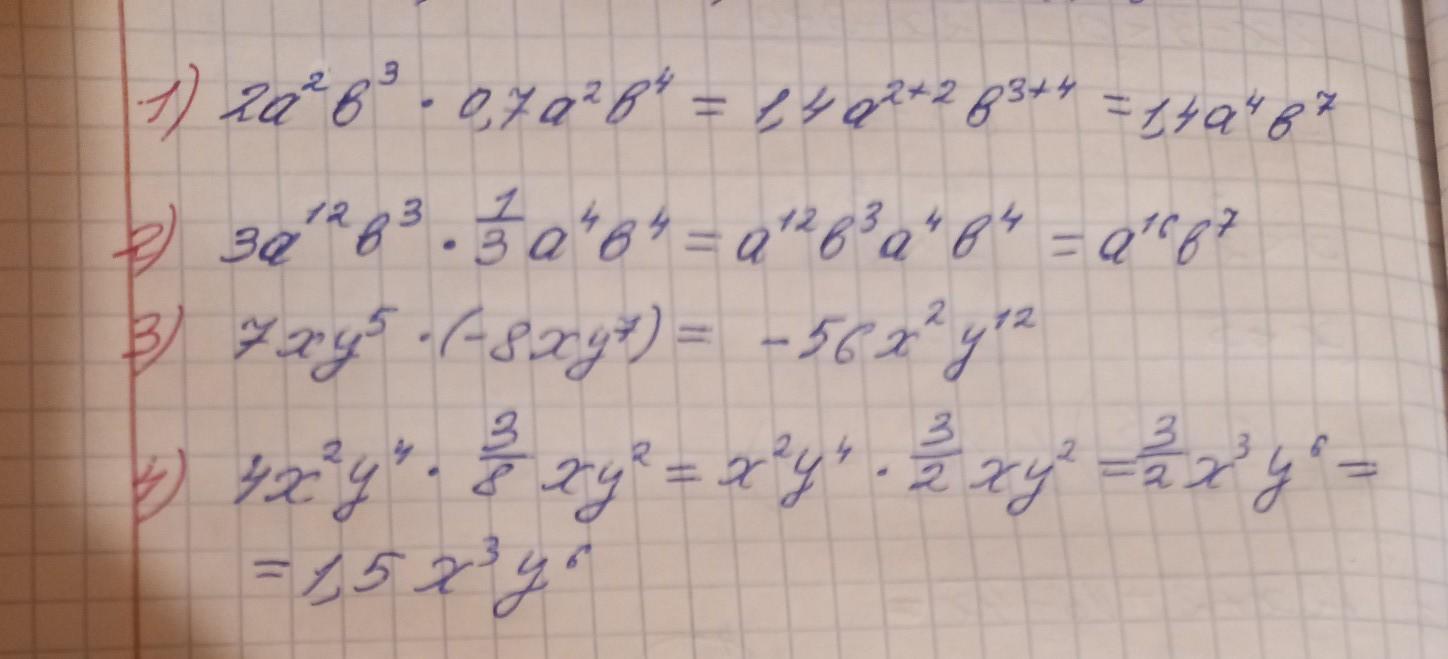 1) 2a²b³ · 0,7a²b⁴ = 1,4a²⁺²b³⁺⁴ = 1,4a⁴b⁷
2) 3a¹²b³ · 1/3 a⁴b⁴ = a¹²b³a⁴b⁴ = a¹⁶b⁷
3) 7xy⁵ · (-8xy⁷) = -56x²y¹²
4) 4x²y⁴ · 3/8 xy² = x²y⁴ · 3/2 xy² = 3/2 x³y⁶ =
= 1,5x³y⁶